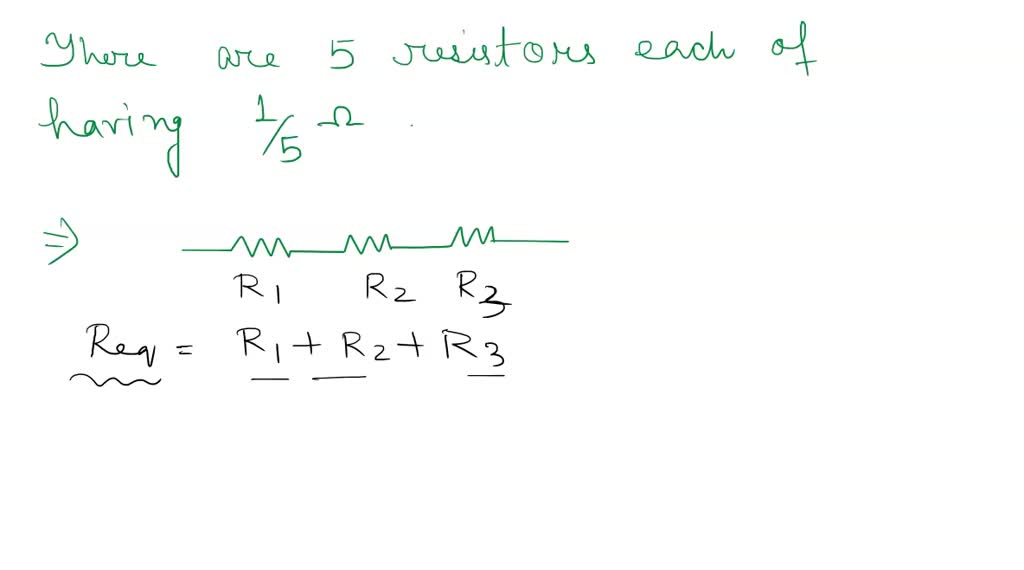 There are 5 resistors each of
having 1/5 Ω .
⇒
R1 R2 R3
Req = R1 + R2 + R3